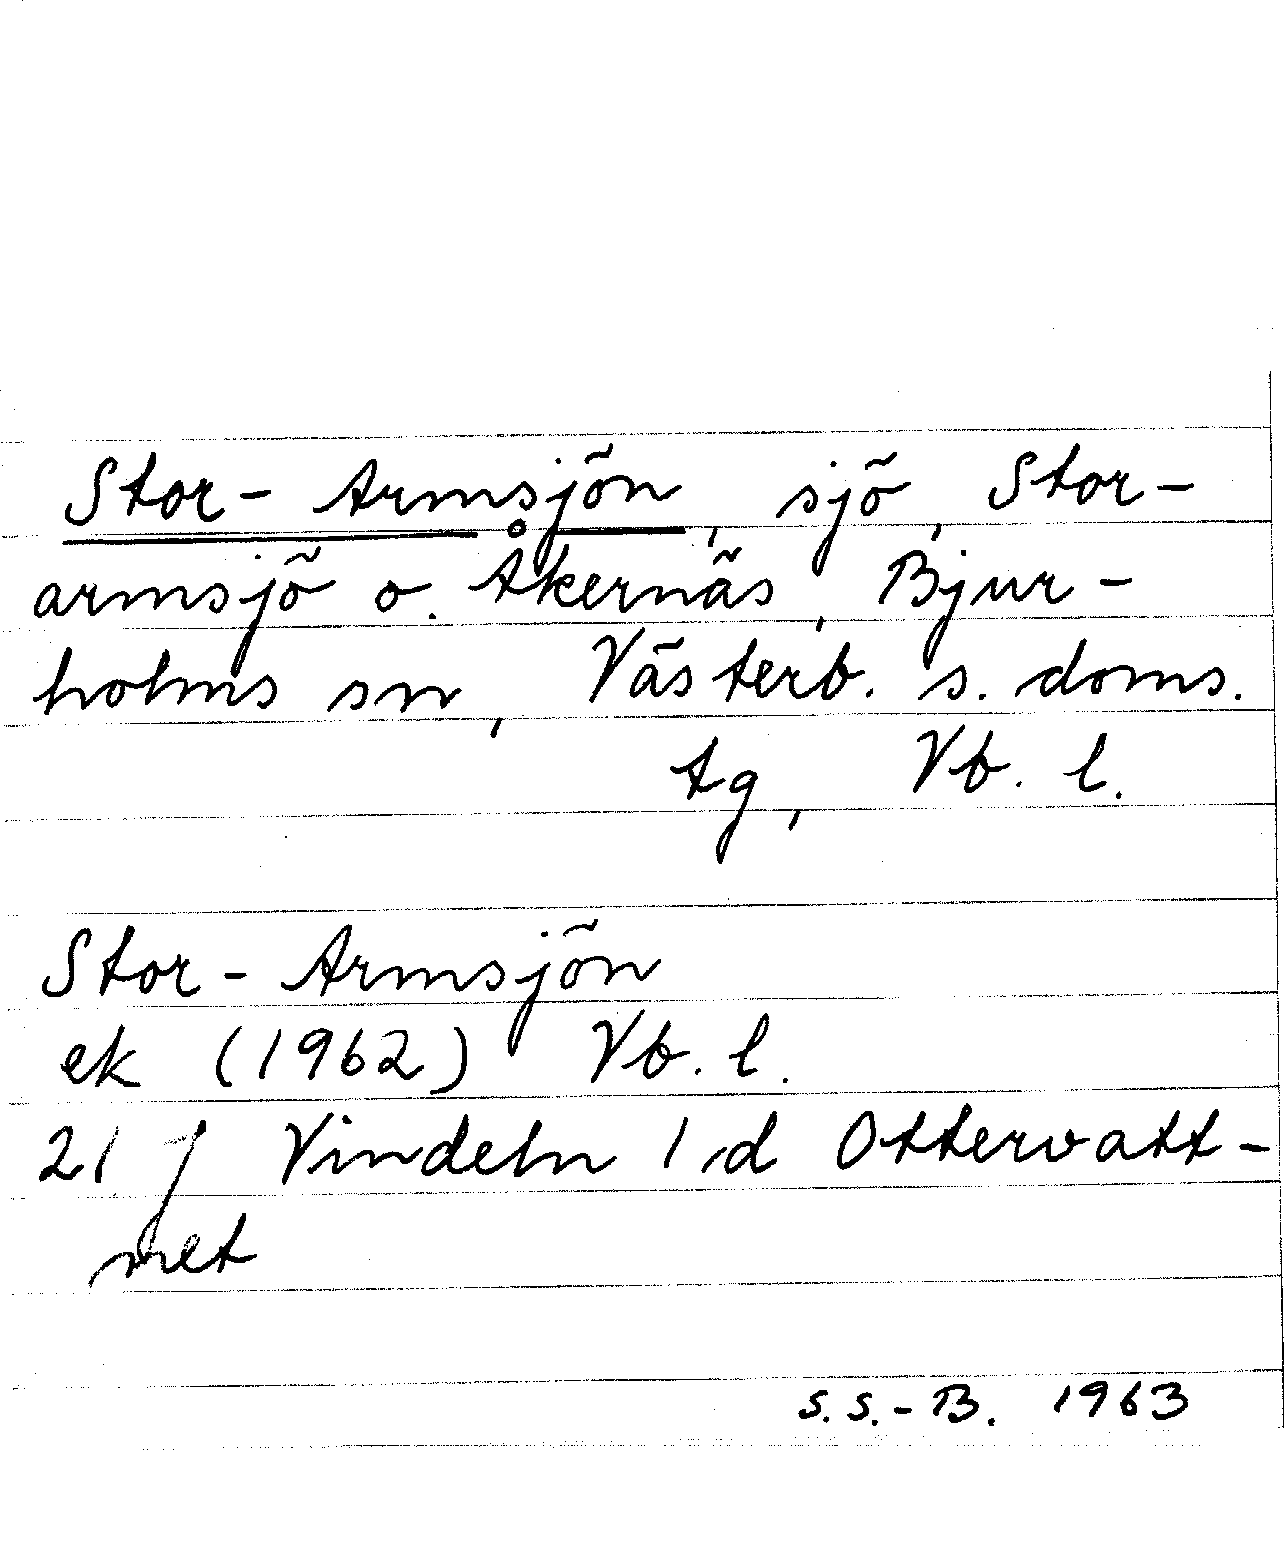 Stor-Armsjön, sjö, Stor-
armsjö o. Åkernäs, Bjur-
holms sn, Västerb. s. doms.
tg, Vb. l.
Stor-Armsjön
ek (1962) Vb. l.
21 J Vindeln 1 d Ottervatt-
net
S.S.-B. 1963